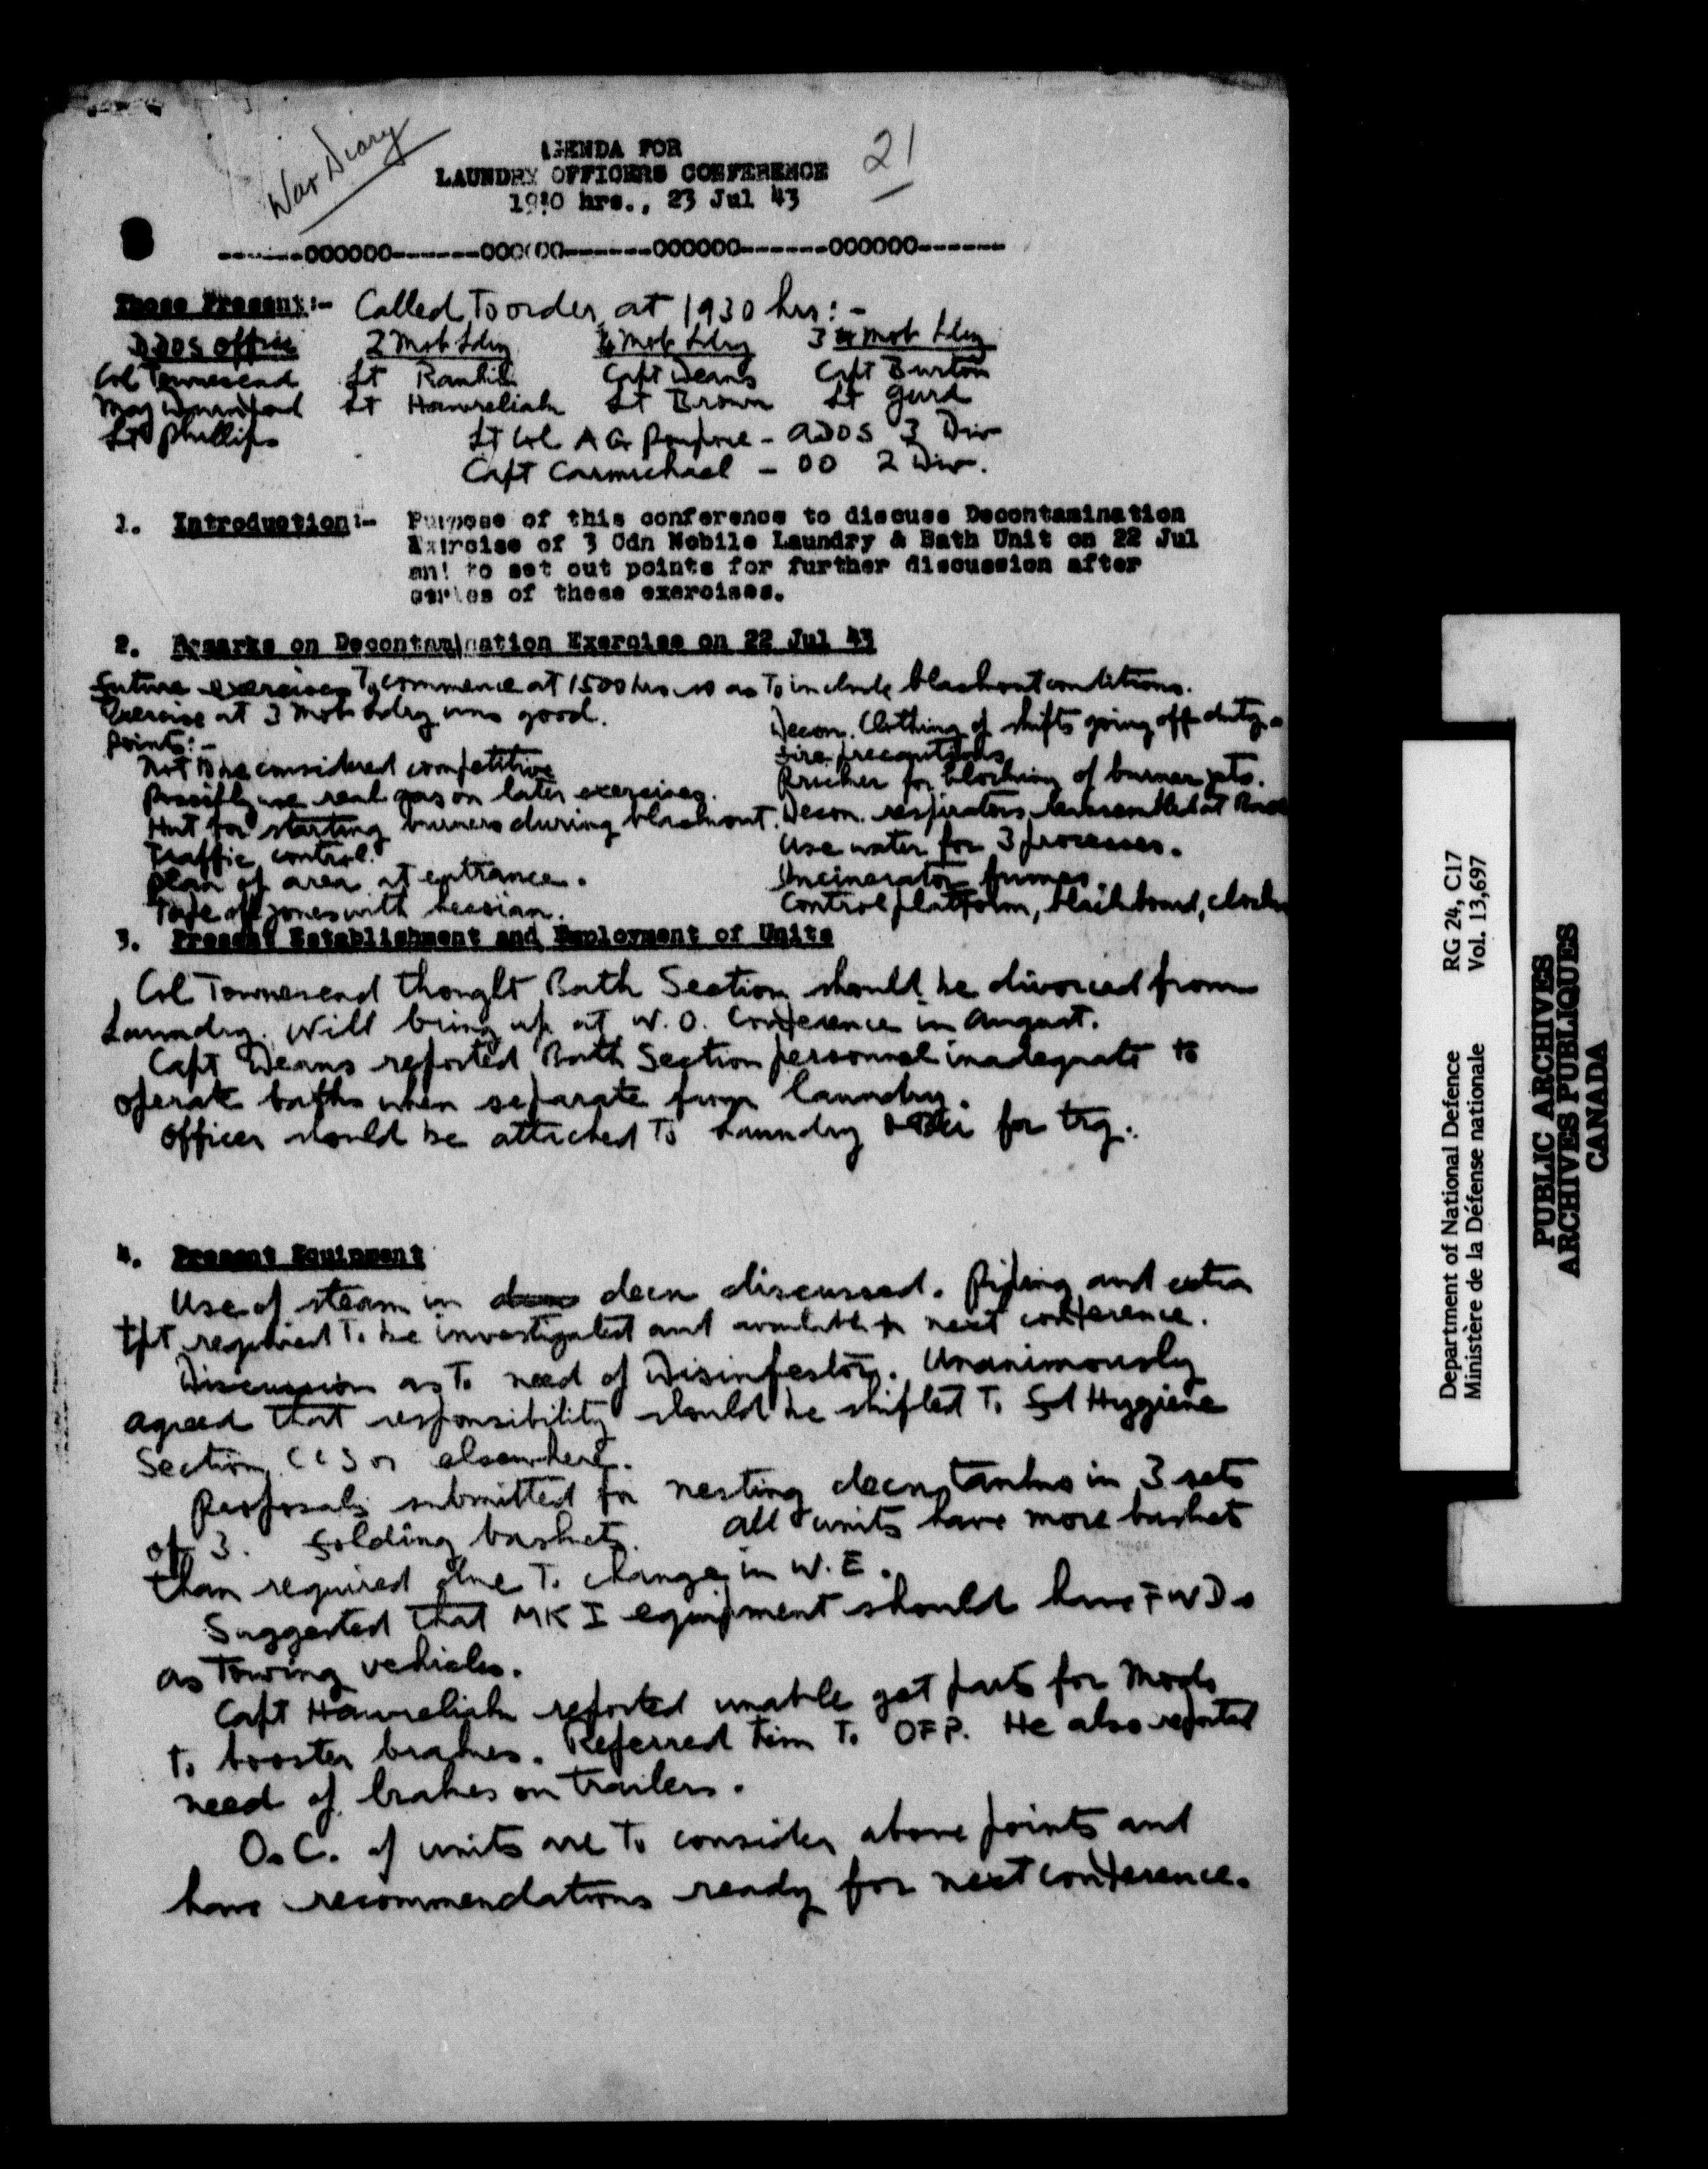 War Diary
AGENDA FOR
LAUNDRY OFFICERS CONFERENCE
hrs., 23 Jul 43
21
-------000000-------000000-------000000-------000000-------
Those Present:- Called to order at 1930 hrs:-
DDOS Office 2 Mob Ldry Mob Ldry 3 Mob Ldry
Col Townesend Lt Capt Deans Capt Burton
Maj Lt Hawreliak Lt Brown Lt Gurd
Lt Phillips Lt Col A G - ADOS 3 Div
Capt Carmichael - OO 2 Div.
1. Introduction:- Purpose of this conference to discuss Decontamination
Exercise of 3 Cdn Mobile Laundry & Bath Unit on 22 Jul
and to set out points for further discussion after
series of these exercises.
2. Remarks on Decontamination Exercise on 22 Jul 43
Future exercises to commence at 1500 hrs so as to include blackout conditions.
Exercise at 3 Mob Ldry was good.
Points:-
Not to be considered competitive
Possibly use real gas on later exercises.
Hut for starting burners during blackout.
Traffic control.
Plan of area at entrance.
Tape off zones with hessian.
Decon. Clothing of shifts going off duty.
Fire precautions
Pricker for blocking of burner jets.
Decon. respirators
Use water for 3 processes.
Incinerator fumes
Control platform, blackboard, clocks
3. Present Establishment and Employment of Units
Col Townesend thought Bath Section should be divorced from
Laundry. Will bring up at W.O. Conference in August.
Capt Deans reported Bath Section personnel inadequate to
operate baths when separate from laundry.
Officer should be attached to Laundry for trg.
4. Present Equipment
Use of steam in decn discussed. Piping and extra
tpt required to be investigated and available for next conference.
Discussion as to need of Disinfestors. Unanimously
agreed that responsibility should be shifted to Fd Hygiene
Section, CCS or elsewhere.
Proposals submitted for nesting decn tanks in 3 sets
of 3. Folding baskets. All units have more baskets
than required due to change in W.E.
Suggested that MK I equipment should have FWDs
as towing vehicles.
Capt Hawreliak reported unable get parts for Mods
to booster brakes. Referred him to OFP. He also reported
need of brakes on trailers.
O.C. of units are to consider above points and
have recommendations ready for next conference.
Department of National Defence RG 24, C17
Ministère de la Défense nationale Vol. 13,697
PUBLIC ARCHIVES
ARCHIVES PUBLIQUES
CANADA